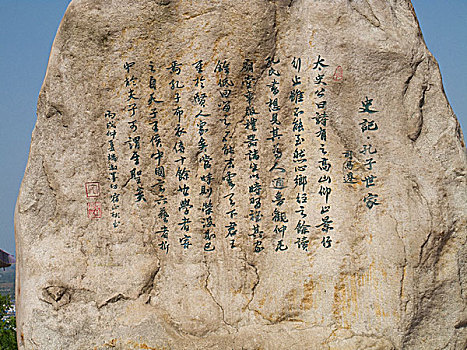 史記孔子世家
司馬遷
太史公曰詩有之高山仰止景行
行止雖不能至然心鄉往之余讀
孔氏書想見其為人適魯觀仲尼
廟堂車服禮器諸生以時習禮其家
餘低回留之不能去云天下君王
至於賢人眾矣當時則榮沒則已
焉孔子布衣傳十餘世學者宗
之自天子王侯中國言六藝者折
中於夫子可謂至聖矣
丙戌仲夏